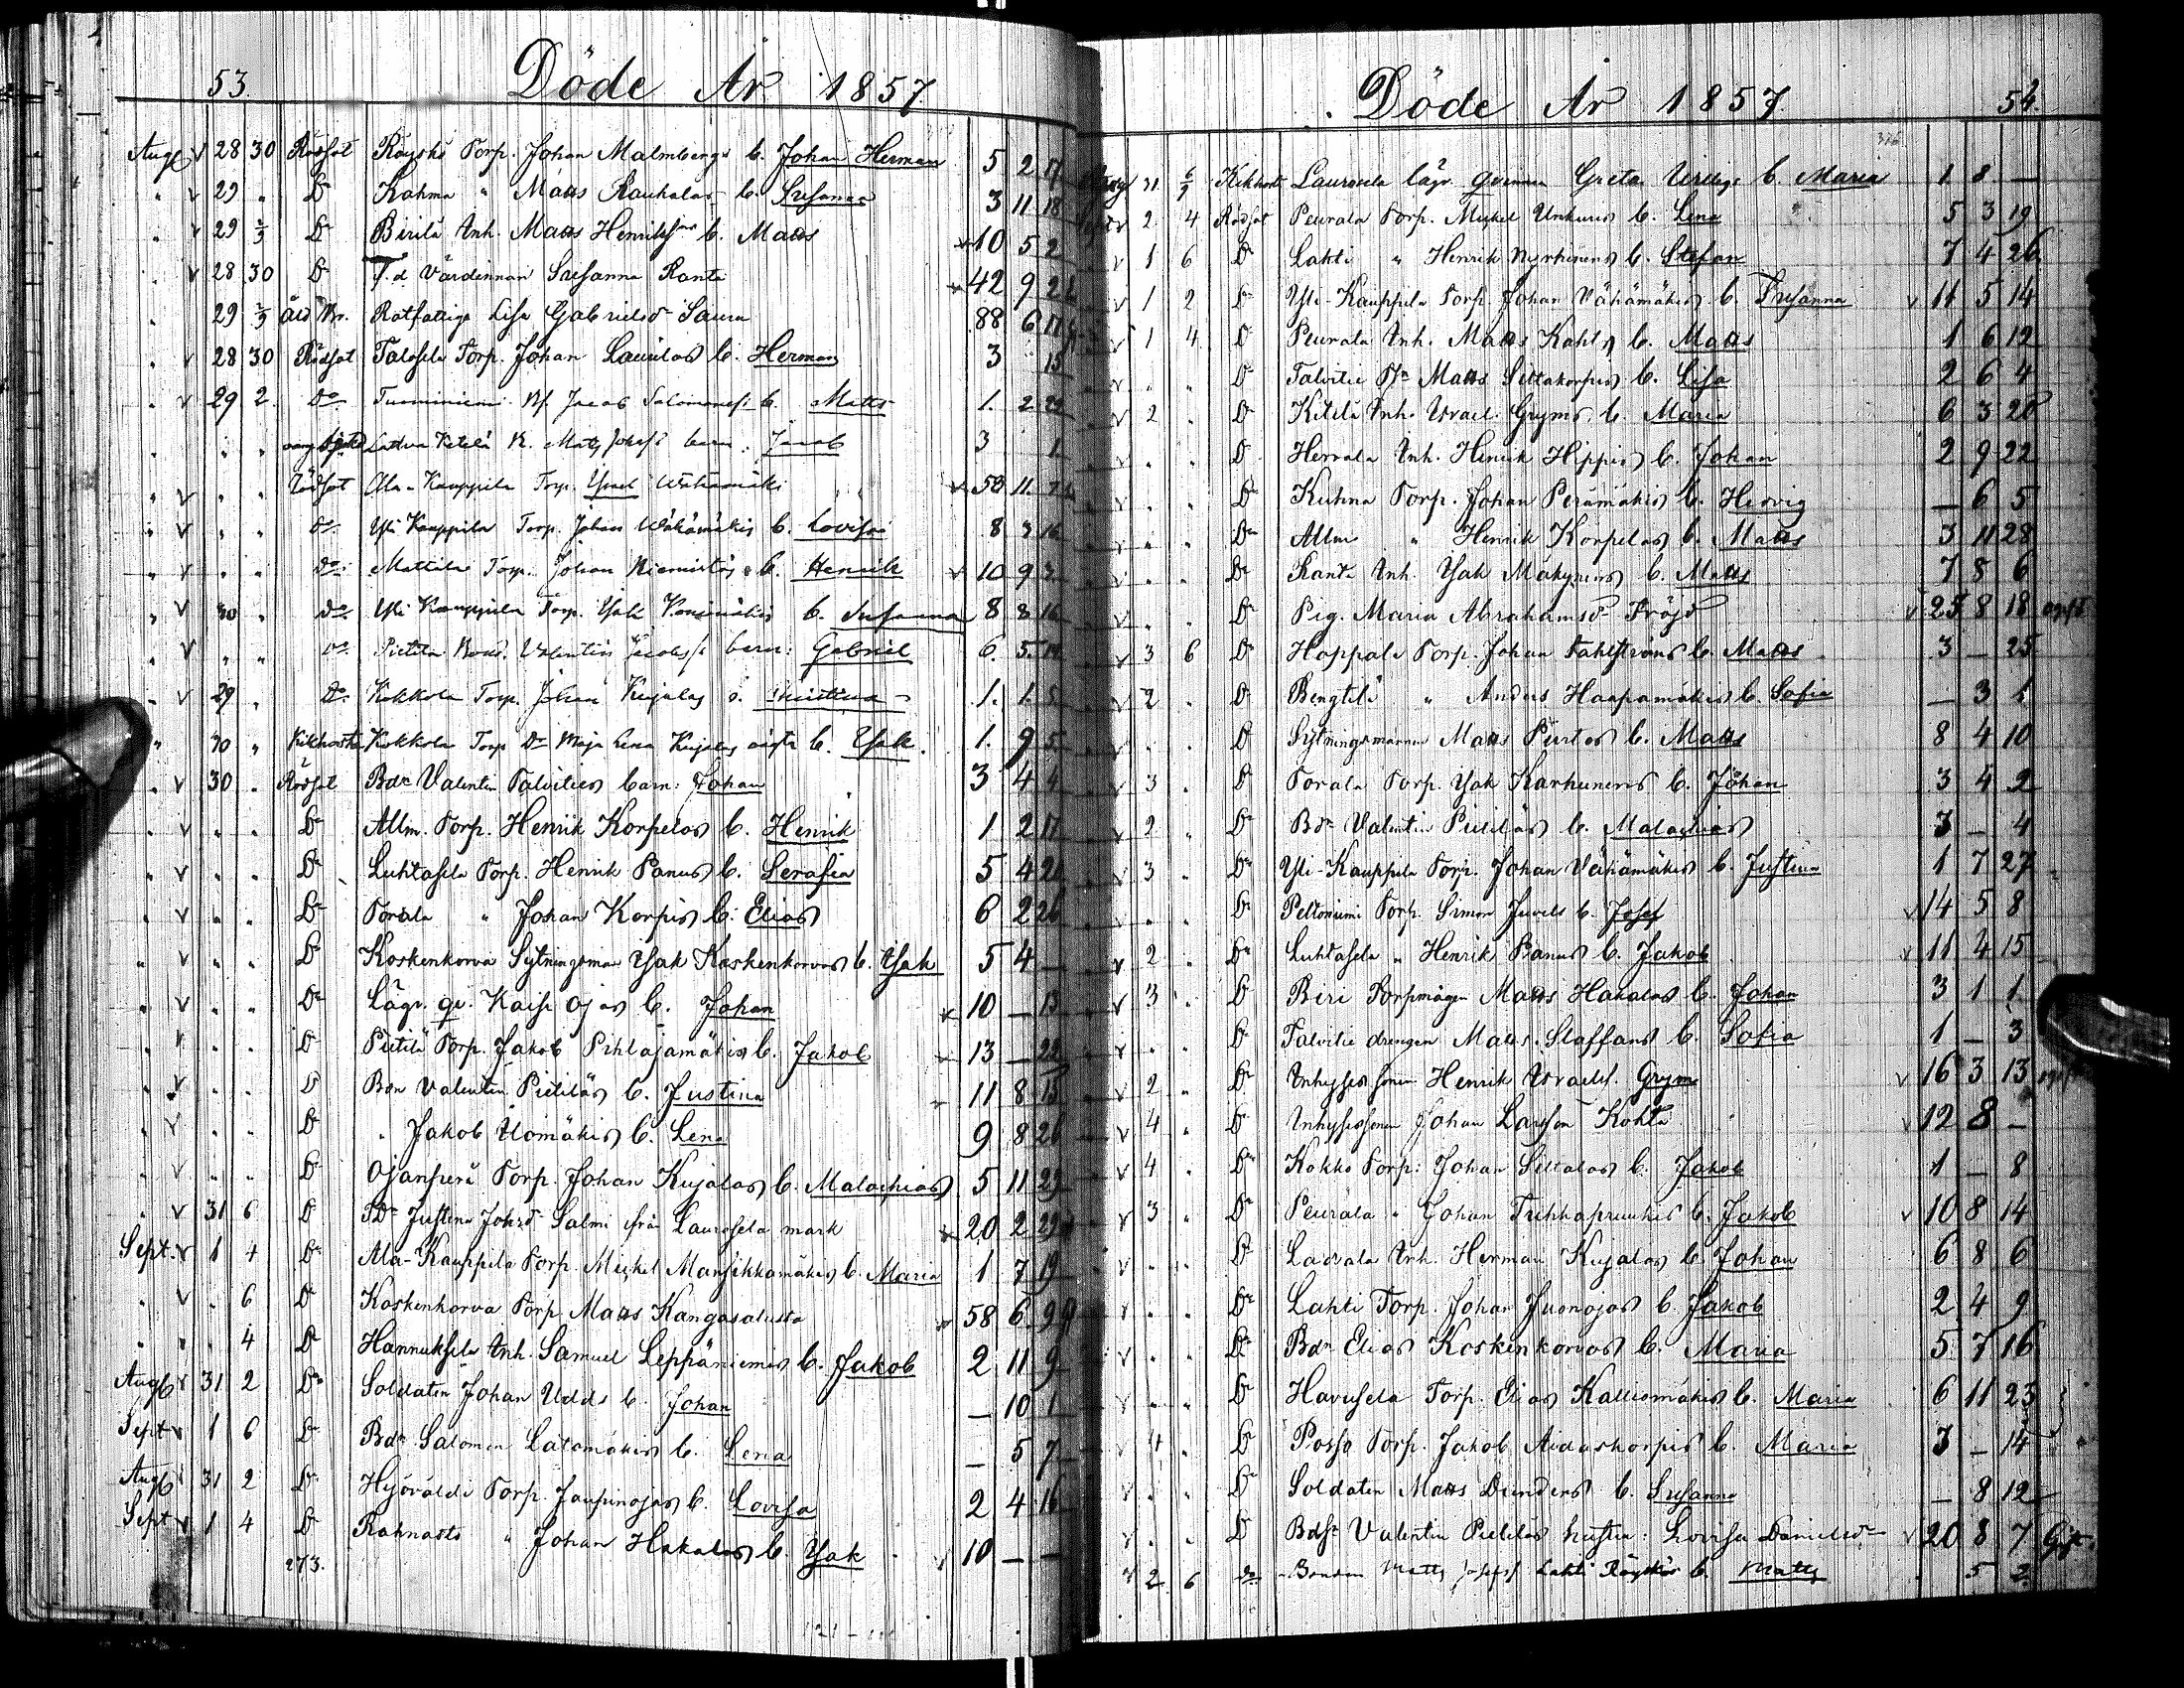 53.
Döde År 1857.
Aug v 28 30 Rödsot Röyskö Torp. Johan Malmbergs b. Johan Herman 5 2 17
" v 29 " Do Kahma " Matts Raukalas b. Susanna 3 11 18
" v 29 2/9 Do Birilä Inh. Matts Henrikss b. Matts 10 5 2
v 28 30 Do F.d. Värdinnan Susanna Ranta 42 9 26
" 29 2/9 Rotfattige Lisa Gabrielsd Saura 88 6 17
" v 28 30 Rödsot Talosela Torp. Johan Laurilas b. Herman 3 15
" v 29 2 Do Tuominiemi Bf. Jacob Salomonss b. Matts 1. 2 22
" " " Ketelä Matts barn: Jacob 3 1
" v " " Rödsot Ala-Kauppila Torp. Isack Wähämäki 58 11.
" v " " Do Yli Kauppila Torp. Johan Wähämäkis b. Lovisa 8 3 16
" v " " Do Mattila Torp. Johan Niemistös b. Henrik 10 9 3
" v 30 " Do Yli Kauppila Torp. Isak b. Susanna 8 8 16
" v " " Do Pietilä Bond. Valentin Jacobss barn: Gabriel 6. 5. 14
" v 29 " Do Kokkola Torp. Johan Kujalas 1. 1. 5
" 30 " Kikhosta Kokkola Torp. Do Maja Lena Kujalas b. Isak. 1. 9 5
" v 30 " Rödsot Bdn Valentin Talvities barn: Johan 3 4 4
" v " " Do Allm. Torp. Henrik Korpelas b. Henrik 1 2 17
" v " " Do Luhtasela Torp. Henrik Panus b. Serafia 5 4 21
" v " " Do Torala " Johan Korpis b. Elias 6 2 26
" v " " Do Koskenkorva Sytningsman Isak Koskenkorvas b. Isak 5 4 —
" v " " Do Lägr. qv. Kaisa Ojas b. Johan 10 — 13
" v " " Do Pietilä Torp. Jakob Pihlajamäkis b. Jakob 13 — 22
" v " " Do Bdn Valentin Pietiläs b. Justina 11 8 15
" v " " Do " Jakob Uomäkis b. Lena 9 8 26
" v " " Do Ojanperä Torp. Johan Kujalas b. Malachias 5 11 23
" v 31 6 Do Justina Johsd Salmi från Laurosela mark 20 2 29
Sept. v 1 4 Do Ala-Kauppila Torp. Mickel Mansikkamäkis b. Maria 1 7 19
" v " 6 Do Koskenkorva Torp. Matts Kangasalusta 58 6 9
" " " 4 Do Hannuksela Inh. Samuel Leppäniemis b. Jakob 2 11 9
Aug v 31 2 Do Soldaten Johan Udds b. Johan — 10 1
Sept v 1 6 Do Bdn Salomon Latomäkis b. Lena — 5 7
Aug v 31 2 Do Hyövälde Torp. Jaupinojas b. Lovisa 2 4 16
Sept v 1 4 Do Rahnasto " Johan Hakalas b. Isak 10 — —
273.
Döde År 1857.
54.
376
31 6/9 Kikhosta Laurosela lägr. qvinnan Greta b. Maria 1. 8. —
Sept v 2 4 Rödsot Peurala Torp. Mickel Unkuris b. Lena 5 3 19
v 1 6 Do Lahti " Henrik Nyrhinens b. Stefan 7 4 26
v 1 2 Do Yli-Kauppila Torp. Johan Vähämäkis b. Susanna v 11 5 14
v 1 4 Do Peurala Inh. Matts Kahls b. Matts 1 6 12
v " " Do Talvitie Matts Siltakorpis b. Lisa 2 6 4
v 2 " Do Kitilä Inh. Israel Gryms b. Maria 6 3 20
v " " Do Herrala Inh. Henrik Hippis b. Johan 2 9 22
v " " Do Kuhna Torp. Johan Perämäkis b. Hedvig — 6 5
v " " Do Allm " Henrik Korpelas b. Matts 3 11 28
v " " Do Ranta Inh. Isak Mäkynens b. Matts 7 8 6
v " " Do Pig. Maria Abrahamsd Fröjd v 25 8 18 ogift
v 3 6 Do Hoppala Torp. Johan Fahlströms b. Matts 3 — 25
v 2 " Do Bengtilä " Anders Haapamäkis b. Sofia — 3 1
v " " Do Sytningsmannen Matts Peurtos b. Matts 8 4 10
v 3 " Do Torala Torp. Isak Karhunens b. Johan 3 4 2
v 2 " Do Bdn Valentin Pietiläs b. Malachias 3 — 4
v 3 " Do Yli-Kauppila Torp. Johan Vähämäkis b. Justina 1 7 27
v " " Do Peltoniemi Torp. Simon Juvels b. Josef v 14 5 8
v 2 " Do Luhtasela " Henrik Panus b. Jakob v 11 4 15
v 3 " Do Biri Torpmågen Matts Hakalas b. Johan 3 1 1
v " " Do Talvitie drengen Matts Staffans b. Sofia 1 — 3
v 2 " Do Inhyses sonen Henrik Israels. Grym v 16 3 13 ogift
v 4 " Do Inhysessonen Johan Larsson Kohta v 12 8 —
v 4 " Do Kokko Torp: Johan Siltalas b. Jakob 1 — 8
v 3 " Do Peurala " Johan b. Jakob v 10 8 14
v " " Do Ladvala Inh. Herman Kujalas b. Johan 6 8 6
v " " Do Lahti Torp. Johan Juonojas b. Jakob 2 4 9
v " " Do Bdn Elias Koskenkorvas b. Maria 5 7 16
v " " Do Havusela Torp. Elias Kalliomäkis b. Maria 6 11 23
v 4 " Do Posso Torp. Jakob Aidaskorpis b. Maria 3 — 14
v " " Do Soldaten Matts Dunders b. Susanna — 8 12
v " " Do Valentin Pietiläs hustru: Lovisa Danielsd v 20 8 7 Gift.
v 2 6 Do Bonden Matts Josefss Lahti Röyskös b. Matts 5 2